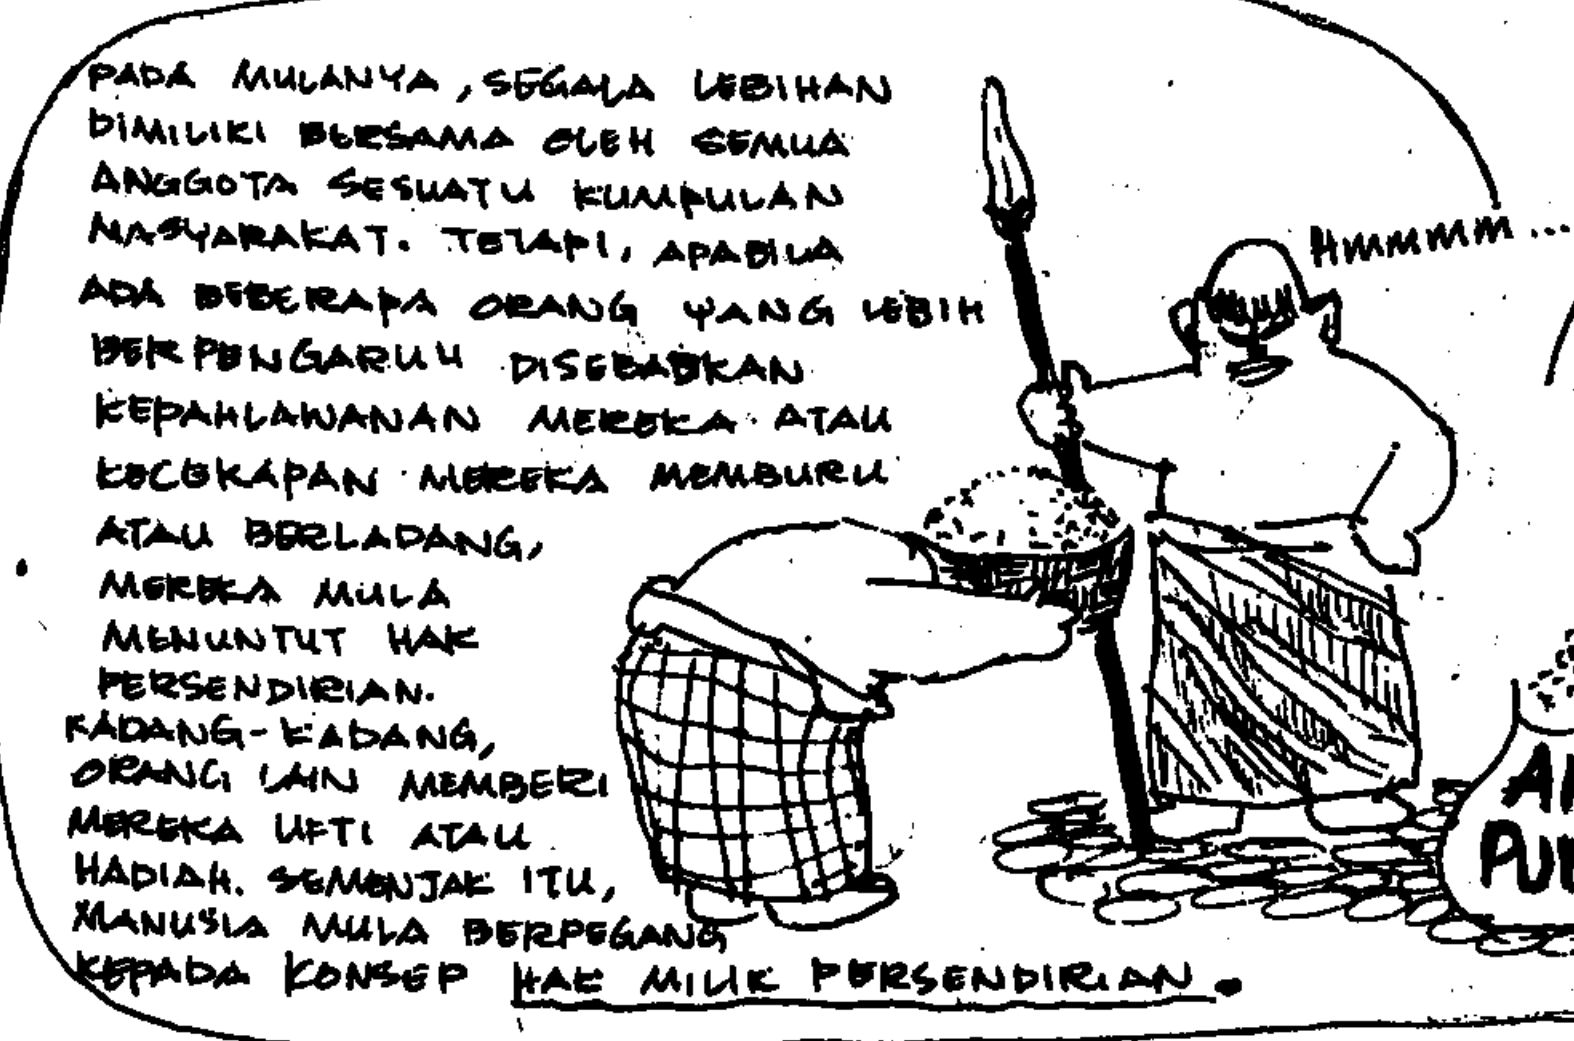 PADA MULANYA, SEGALA LEBIHAN
DIMILIKI BERSAMA OLEH SEMUA
ANGGOTA SESUATU KUMPULAN
MASYARAKAT. TETAPI, APABILA
ADA BEBERAPA ORANG YANG LEBIH
BERPENGARUH DISEBABKAN
KEPAHLAWANAN MEREKA ATAU
KECEKAPAN MEREKA MEMBURU
ATAU BERLADANG,
MEREKA MULA
MENUNTUT HAK
PERSENDIRIAN.
KADANG-KADANG,
ORANG LAIN MEMBERI
MEREKA UFTI ATAU
HADIAH. SEMENJAK ITU,
MANUSIA MULA BERPEGANG
KEPADA KONSEP HAK MILIK PERSENDIRIAN.
HMMMMM...